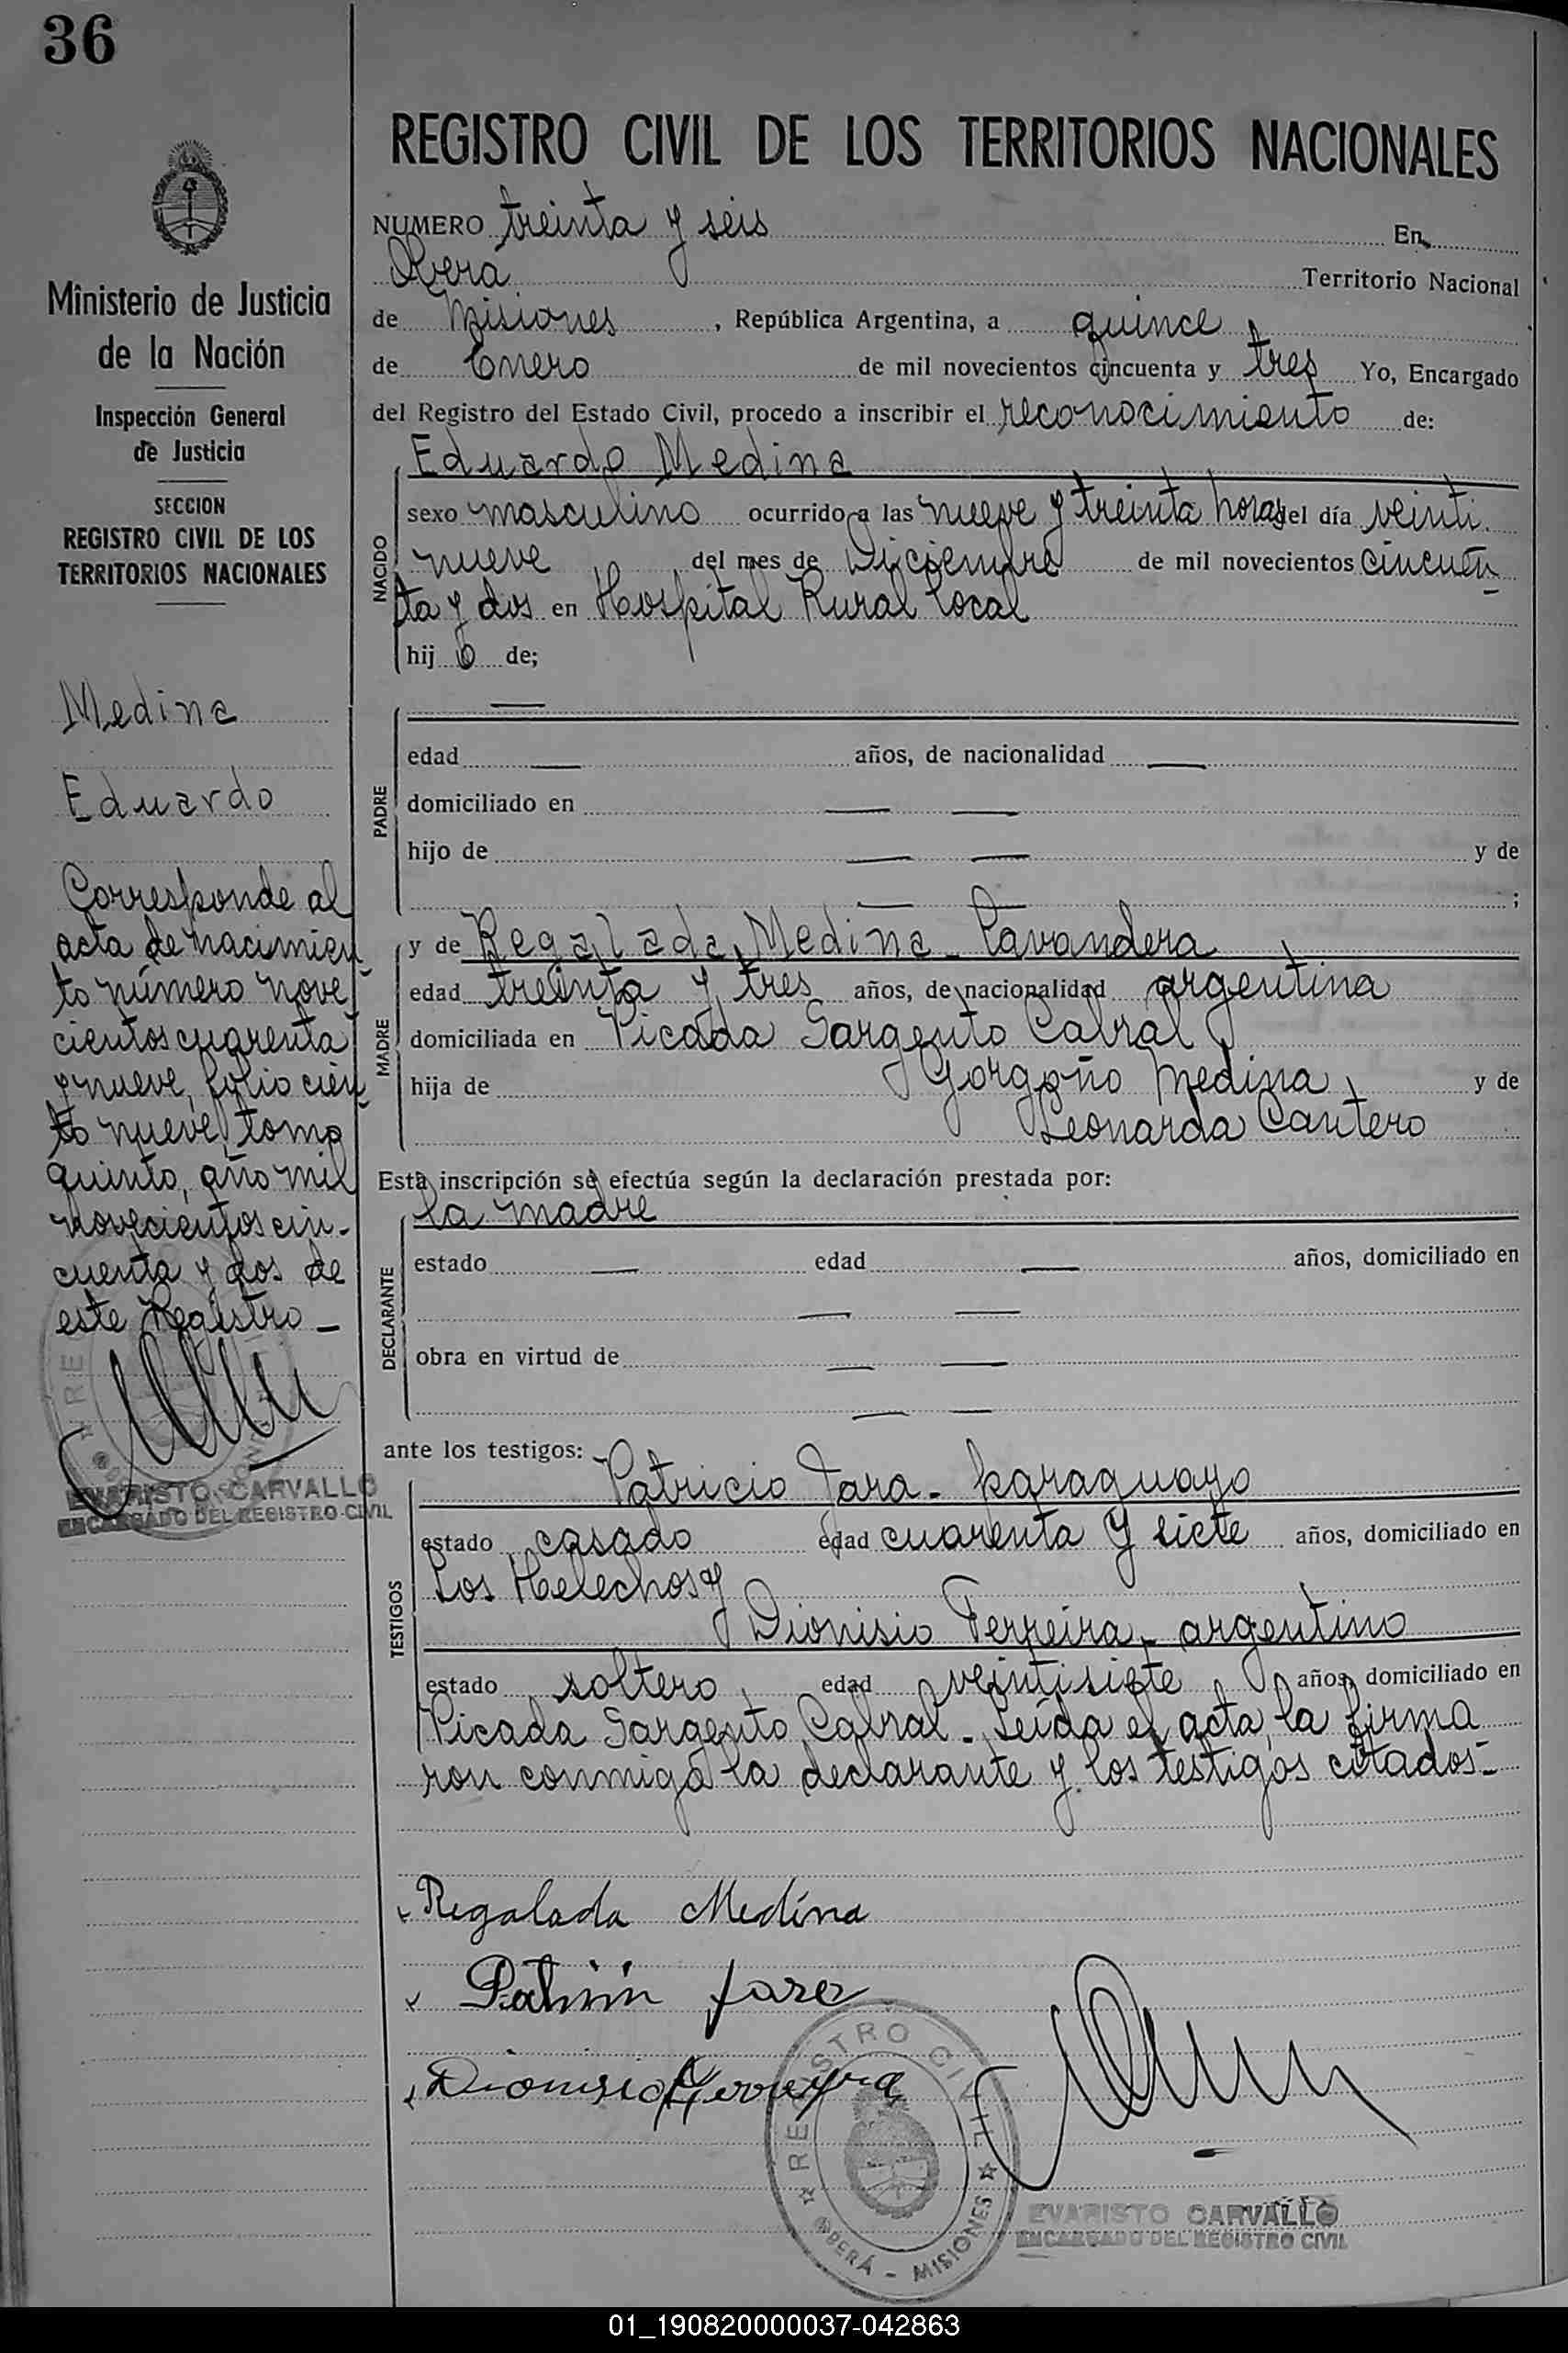 36
REGISTRO CIVIL DE LOS TERRITORIOS NACIONALES
Ministerio de Justicia
de la Nación
Inspección General
de Justicia
SECCION
REGISTRO CIVIL DE LOS
TERRITORIOS NACIONALES
Medina
Eduardo
Corresponde al
acta de nacimien
to número nove
cientos cuarenta
y nueve, folio cien
to nueve, tomo
quinto, año mil
novecientos cin-
cuenta y dos de
este Registro -
EVARISTO CARVALLO
ENCARGADO DEL REGISTRO CIVIL
NUMERO treinta y seis En
Oberá Territorio Nacional
de Misiones, República Argentina, a quince
de Enero de mil novecientos cincuenta y tres Yo, Encargado
del Registro del Estado Civil, procedo a inscribir el reconocimiento de:
NACIDO
Eduardo Medina
sexo masculino ocurrido a las nueve y treinta horas del día veinti
nueve del mes de Diciembre de mil novecientos cincuen
ta y dos en Hospital Rural local
hij o de;
PADRE
—
edad — años, de nacionalidad —
domiciliado en — —
hijo de — — y de
— — ;
MADRE
y de Regalada Medina - Lavandera
edad treinta y tres años, de nacionalidad argentina
domiciliada en Picada Sargento Cabral
hija de Gorgoño Medina y de
Leonarda Cantero
Esta inscripción se efectúa según la declaración prestada por:
DECLARANTE
la madre
estado — edad — años, domiciliado en
— —
obra en virtud de — —
— —
ante los testigos:
TESTIGOS
Patricio Jara - paraguayo
estado casado edad cuarenta y siete años, domiciliado en
Los Helechos y
Dionisio Ferreira - argentino
estado soltero edad veintisiete años, domiciliado en
Picada Sargento Cabral - Leída el acta, la firma
ron conmigo la declarante y los testigos citados -
Regalada Medina
jara
Dionisio
REGISTRO CIVIL
OBERÁ - MISIONES
EVARISTO CARVALLO
ENCARGADO DEL REGISTRO CIVIL
01_190820000037-042863